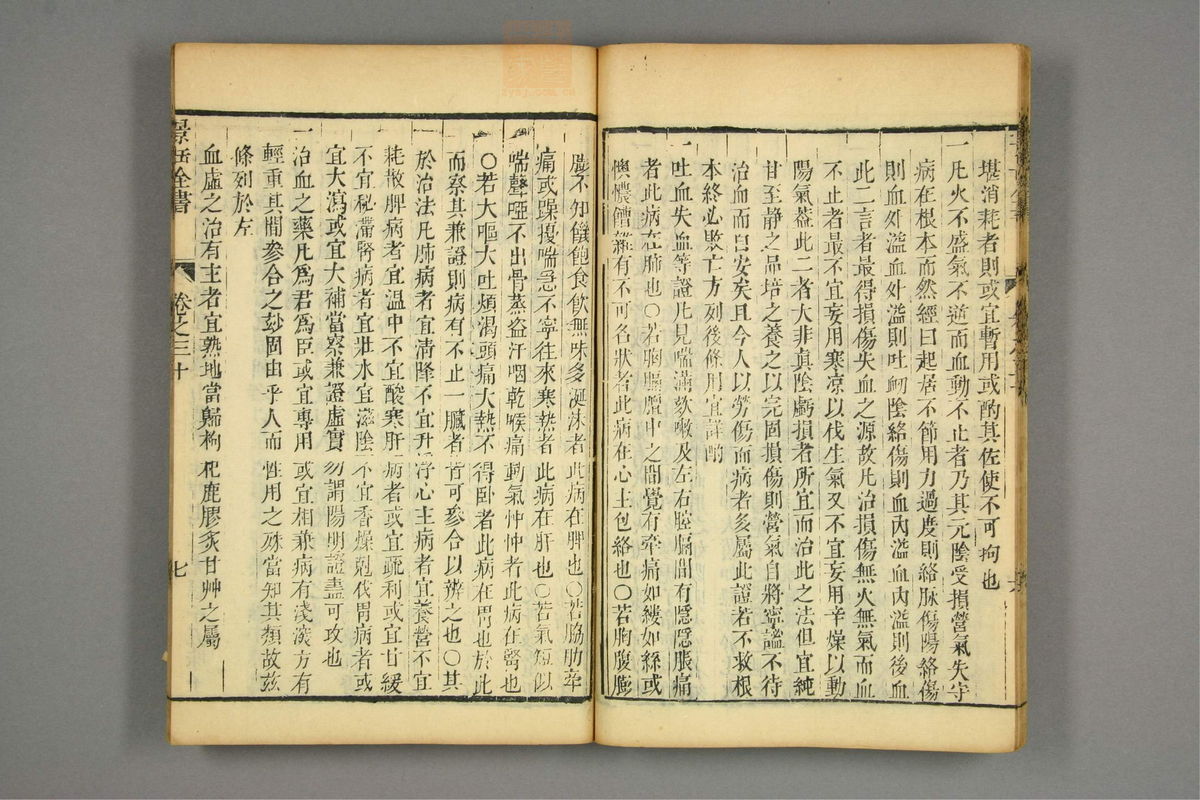 堪消耗者則或宜暫用或酌其佐使不可拘也
一凡火不盛氣不逆而血動不止者乃其元陰受損營氣失守
病在根本而然經曰起居不節用力過度則絡脉傷陽絡傷
則血外溢血外溢則吐衂陰絡傷則血內溢血內溢則後血
此二言者最得損傷失血之源故凡治損傷無火無氣而血
不止者最不宜妄用寒凉以伐生氣又不宜妄用辛燥以動
陽氣葢此二者大非真陰虧損者所宜而治此之法但宜純
甘至靜之品培之養之以完固損傷則營氣自將寧謐不待
治血而自安矣且今人以勞傷而病者多屬此證若不救根
本終必敗亡方列後條用宜詳酌
一吐血失血等證凡見喘滿欬嗽及左右腔膈間有隱隱脹痛
者此病在肺也〇若胸膈膻中之間覺有牽痛如縷如絲或
懊憹嘈雜有不可名狀者此病在心主包絡也〇若胸腹膨
膨不知饑飽食飲無味多涎沫者此病在脾也〇若脇肋牽
痛或躁擾喘急不寧往來寒熱者此病在肝也〇若氣短似
喘聲啞不出骨蒸盜汗咽乾喉痛動氣忡忡者此病在腎也
〇若大嘔大吐煩渴頭痛大熱不得卧者此病在胃也於此
而察其兼證則病有不止一臟者皆可參合以辨之也〇其
於治法凡肺病者宜清降不宜升浮心主病者宜養營不宜
耗散脾病者宜溫中不宜酸寒肝病者或宜疏利或宜甘緩
不宜秘滯腎病者宜壯水宜滋陰不宜香燥剋伐胃病者或
宜大瀉或宜大補當察兼證虛實勿謂陽明證盡可攻也
一治血之藥凡爲君爲臣或宜專用或宜相兼病有淺深方有
輕重其間參合之玅固由乎人而性用之殊當知其類故茲
條列於左
血虛之治有主者宜熟地當歸枸杞鹿膠炙甘艸之屬
景岳全書
卷之三十
七